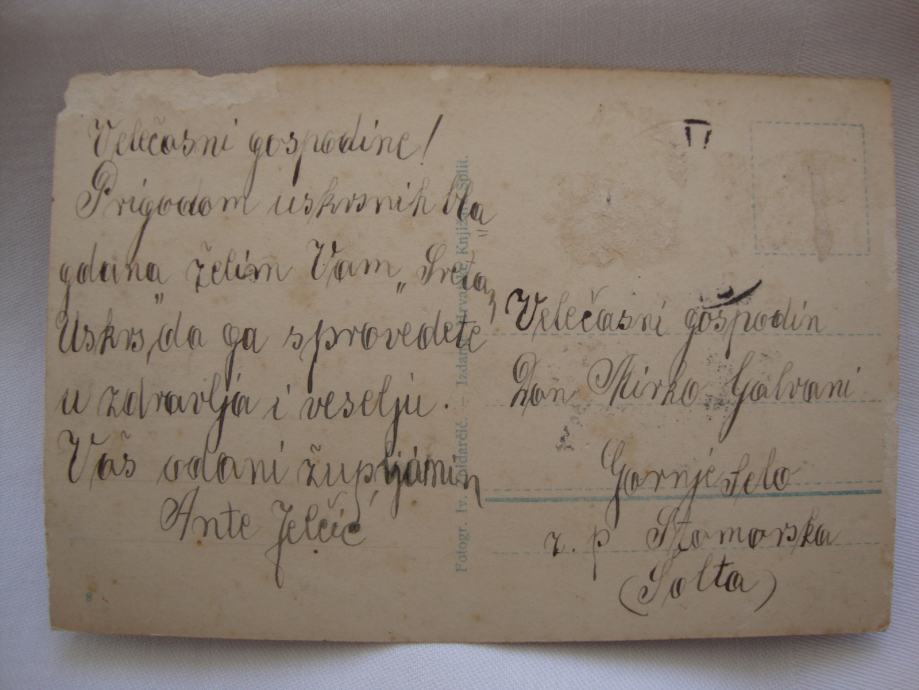 Velečasni gospodine!
Prigodom uskrsnih bla
gdana želim Vam „Sretan
Uskrs" da ga sprovedete
u zdravlja i veselju.
Vaš odani župljanin
Ante Jelčić
Fotogr. Iv. – Izdanje Hrvatske Knjižare Split.
8
T
Velečasni gospodin
Don Mirko Galvani
Gornje Selo
z. p Stomorska
(Šolta)